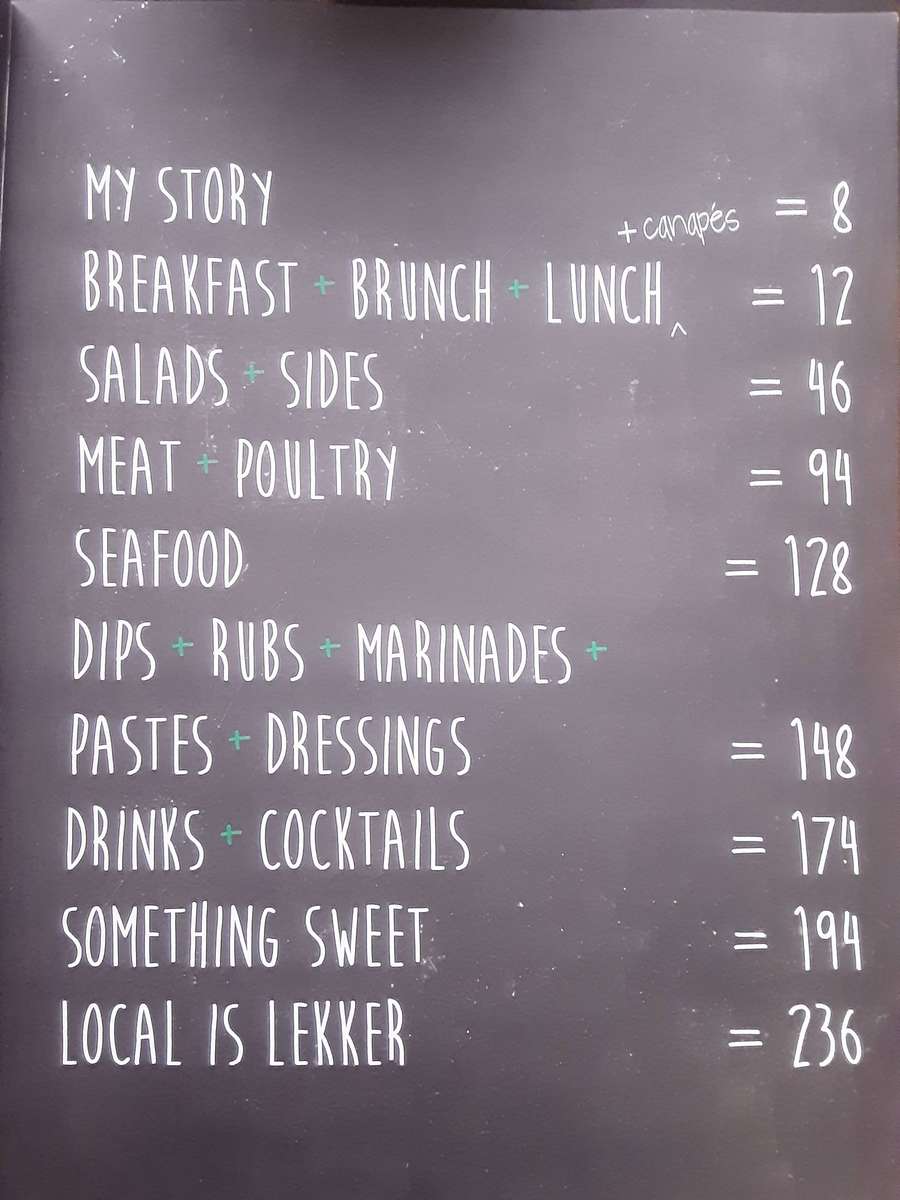 MY STORY = 8
+ canapés
BREAKFAST + BRUNCH + LUNCH^ = 12
SALADS + SIDES = 46
MEAT + POULTRY = 94
SEAFOOD = 128
DIPS + RUBS + MARINADES +
PASTES + DRESSINGS = 148
DRINKS + COCKTAILS = 174
SOMETHING SWEET = 194
LOCAL IS LEKKER = 236